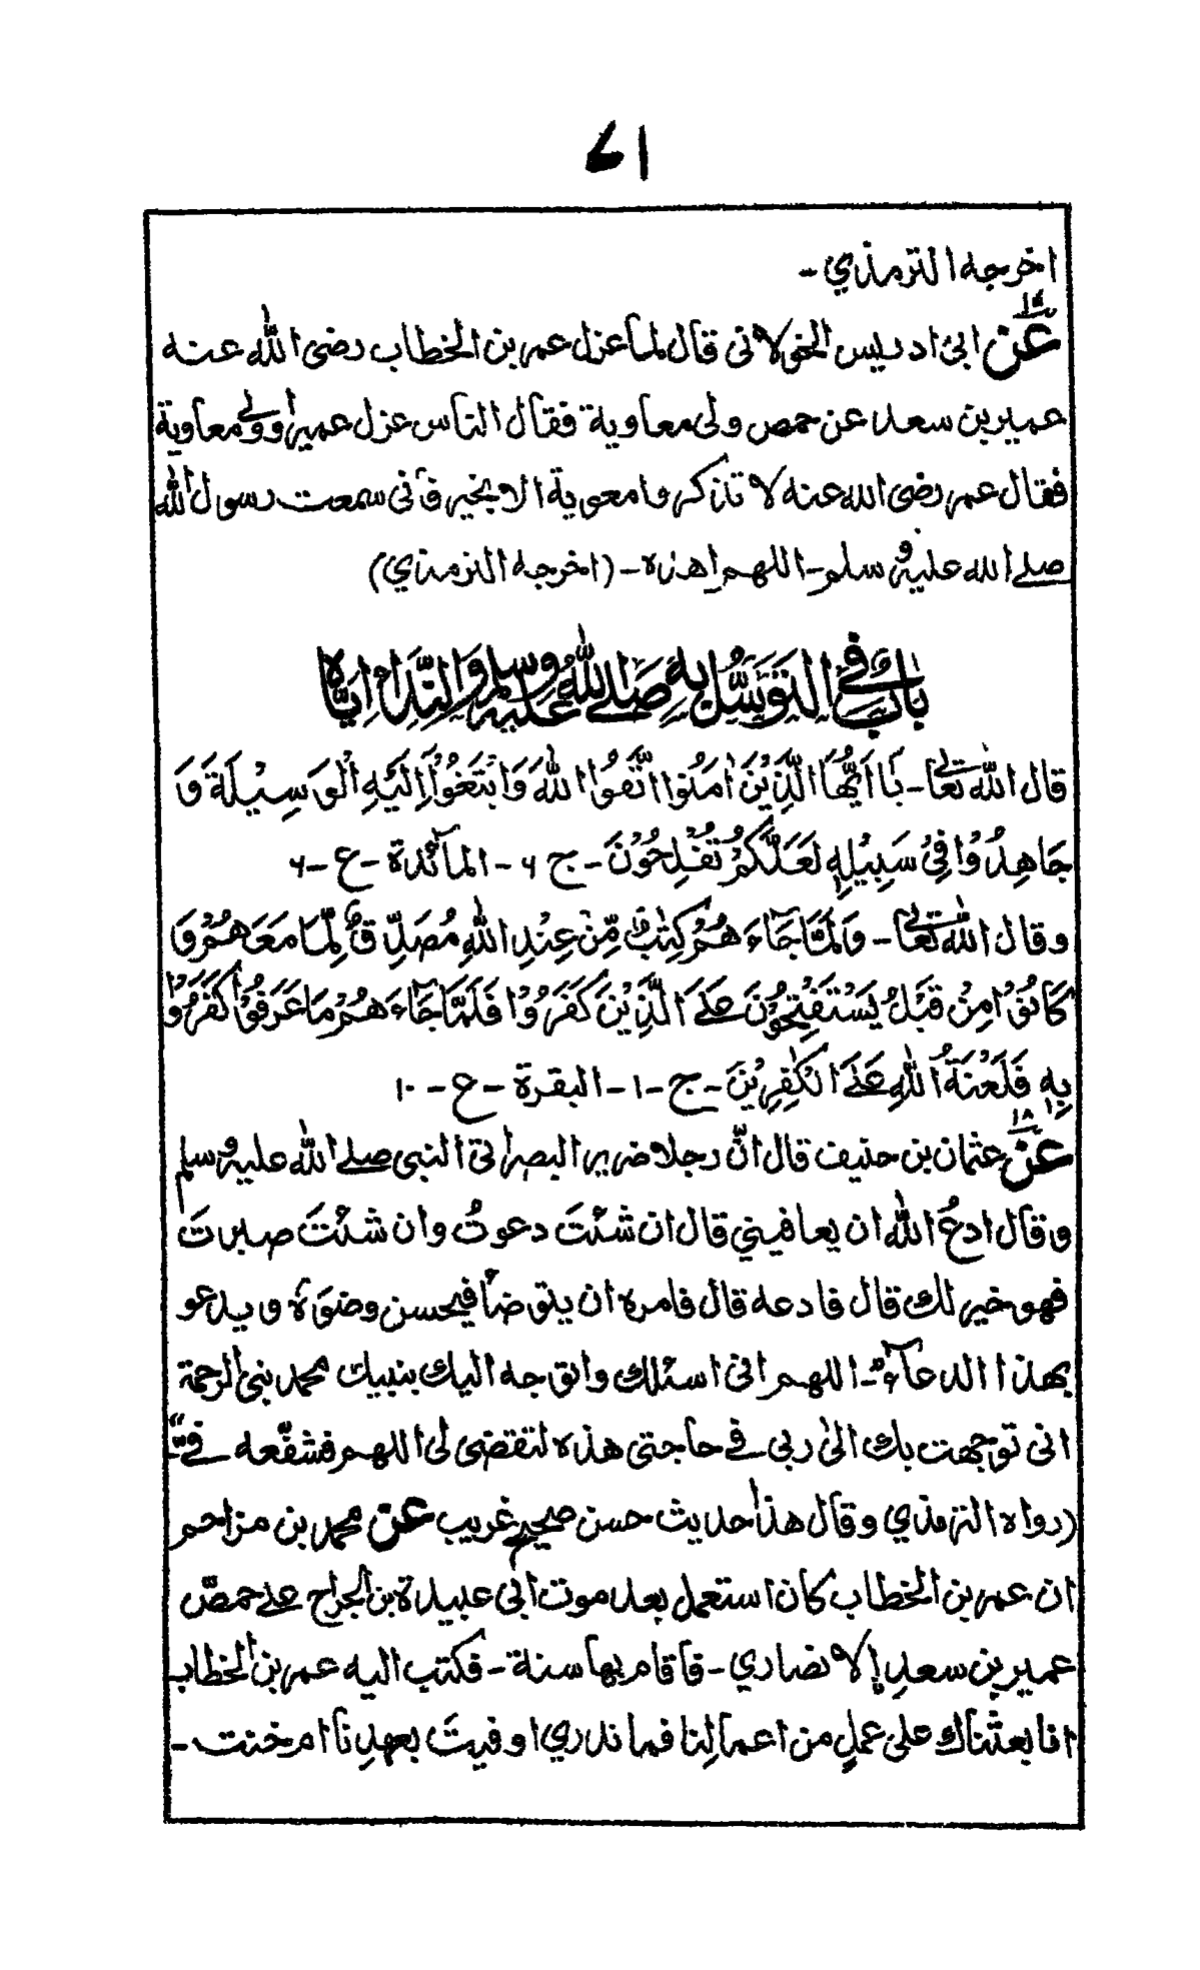 ۱۷
اخرجه الترمذي -
عن ۱۷ ابی ادریس الخولانی قال لما عزل عمر بن الخطاب رضی الله عنه
عمیر بن سعد عن حمص ولی معاویة فقال الناس عزل عمیراً وولی معاویة
فقال عمر رضی الله عنه لا تذکروا معویة الا بخیر فانی سمعت رسول الله
صلے الله علیه وسلم - اللهم اهده - (اخرجه الترمذي)
بَابٌ فِی التَّوَسُّلِ بِهٖ صَلے اللهُ عَلَيْهِ وَسلم وَالنِّدَاءِ اِيَّاهُ
قال الله تعالیٰ - يَا اَيُّهَا الَّذِيْنَ اٰمَنُوا اتَّقُوا اللهَ وَابْتَغُوْا اِلَيْهِ الْوَسِيْلَةَ وَ
جَاهِدُوْا فِيْ سَبِيْلِهٖ لَعَلَّكُمْ تُفْلِحُوْنَ - ج ۶ - المآئدة - ع - ۶
وقال الله تعالیٰ - وَلَمَّا جَآءَهُمْ كِتٰبٌ مِّنْ عِنْدِ اللهِ مُصَدِّقٌ لِّمَا مَعَهُمْ وَ
كَانُوْا مِنْ قَبْلُ يَسْتَفْتِحُوْنَ عَلَے الَّذِيْنَ كَفَرُوْا فَلَمَّا جَآءَهُمْ مَا عَرَفُوْا كَفَرُوْا
بِهٖ فَلَعْنَةُ اللهِ عَلَے الْكٰفِرِيْنَ - ج - ۱ - البقرة - ع - ۱۰
عن ۱۸ عثمان بن حنیف قال انّ رجلا ضریر البصر اتی النبی صلے الله علیه وسلم
وقال ادعُ الله ان یعافیني قال ان شئتَ دعوتُ وان شئتَ صبرتَ
فهو خیر لك قال فادعه قال فامره ان یتوضأ فیحسن وضوءه ویدعو
بهذا الدعاء - اللهم انی اسئلك واتوجه الیك بنبیك محمد نبی الرحمة
انی توجهت بك الیٰ ربی فے حاجتی هذه لتقضی لی اللهم فشفّعه فیّ
(رواه الترمذي وقال هذا حدیث حسن صحیح غریب عن محمد بن مزاحم
ان عمر بن الخطاب کان استعمل بعد موت ابی عبیدة بن الجراح علے حمصّ
عمیر بن سعدِ الانصاري - فاقام بها سنة - فکتب الیه عمر بن الخطاب
انا بعثناك علی عملٍ من اعمالِنا فما ندري اوفیتَ بعهدِنا ام خنت -